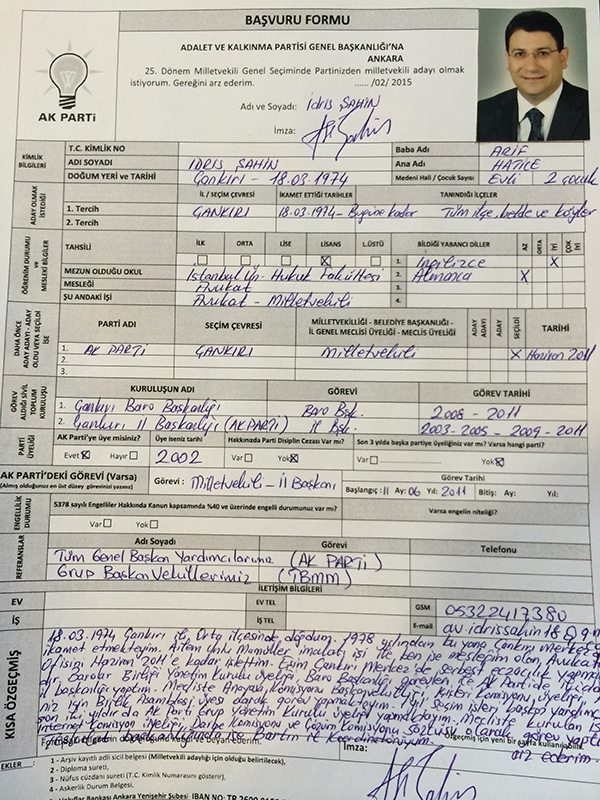 BAŞVURU FORMU
ADALET VE KALKINMA PARTİSİ GENEL BAŞKANLIĞI'NA
ANKARA
25. Dönem Milletvekili Genel Seçiminde Partinizden milletvekili adayı olmak
istiyorum. Gereğini arz ederim. ....../02/ 2015
AK PARTİ
Adı ve Soyadı: İdris ŞAHİN
İmza:
KİMLİK BİLGİLERİ
T.C. KİMLİK NO
Baba Adı ARİF
ADI SOYADI İDRİS ŞAHİN Ana Adı HATİCE
DOĞUM YERİ ve TARİHİ Çankırı - 18.03.1974 Medeni Hali / Çocuk Sayısı EVLİ 2 çocuk
ADAY OLMAK İSTEDİĞİ
İL / SEÇİM ÇEVRESİ İKAMET ETTİĞİ TARİHLER TANINDIĞI İLÇELER
1. Tercih ÇANKIRI 18.03.1974 - Bugüne kadar Tüm ilçe, belde ve köyler
2. Tercih
ÖĞRENİM DURUMU ve MESLEKİ BİLGİLER
TAHSİLİ İLK ORTA LİSE LİSANS L.ÜSTÜ BİLDİĞİ YABANCI DİLLER AZ ORTA İYİ ÇOK İYİ
X 1. İngilizce X
MEZUN OLDUĞU OKUL İstanbul Ün. Hukuk Fakültesi 2. Almanca X
MESLEĞİ Avukat 3.
ŞU ANDAKİ İŞİ Avukat - Milletvekili 4.
DAHA ÖNCE ADAY ADAYI - ADAY OLDU VEYA SEÇİLDİ İSE
PARTİ ADI SEÇİM ÇEVRESİ MİLLETVEKİLLİĞİ - BELEDİYE BAŞKANLIĞI - İL GENEL MECLİSİ ÜYELİĞİ - MECLİS ÜYELİĞİ ADAY ADAYI ADAY SEÇİLDİ TARİHİ
1. AK PARTİ ÇANKIRI Milletvekili X Haziran 2011
2.
3.
GÖREV ALDIĞI SİVİL TOPLUM KURULUŞU
KURULUŞUN ADI GÖREVİ GÖREV TARİHİ
1. Çankırı Baro Başkanlığı Baro Bşk. 2008 - 2011
2. Çankırı İl Başkanlığı (AK PARTİ) İl Bşk. 2003-2005 - 2009-2011
PARTİ ÜYELİĞİ
AK Parti'ye üye misiniz? Üye iseniz tarihi Hakkınızda Parti Disiplin Cezası Var mı? Son 3 yılda başka partiye üyeliğiniz var mı? Varsa hangi parti?
Evet X Hayır 2002 Var Yok X Var Yok X
AK PARTİ'DEKİ GÖREVİ (Varsa)
(Almış olduğunuz en üst düzey görevinizi yazınız)
Görevi : Milletvekili - İl Başkanı
Görev Tarihi
Başlangıç: 11 Ay: 06 Yıl: 2011 Bitiş: Ay: Yıl:
ENGELLİLİK DURUMU
5378 sayılı Engelliler Hakkında Kanun kapsamında %40 ve üzerinde engelli durumunuz var mı? Varsa engelin niteliği?
Var Yok
REFERANSLAR
Adı Soyadı Görevi Telefonu
Tüm Genel Başkan Yardımcılarımız (AK PARTİ)
Grup Başkan Vekillerimiz (TBMM)
İLETİŞİM BİLGİLERİ
EV EV TEL GSM 05322417380
İŞ İŞ TEL E-mail av.idrissahin18@
KISA ÖZGEÇMİŞ
18.03.1974 Çankırı ili Orta ilçesinde doğdum. 1978 yılından bu yana Çankırı Merkez'de
ikamet etmekteyim. Ailem Unlu Mamüller imalatı işi ile ben ise mesleğim olan, Avukatlık
ofisini Haziran 2011'e kadar işlettim. Eşim Çankırı Merkez'de Serbest Eczacılık yapmakta
Barolar Birliği Yönetim Kurulu üyeliği, Baro Başkanlığı görevleri ile AK Parti'de
il başkanlığı yaptım. Mecliste Anayasa Komisyonu Başkanvekilliği,
için üyesi olarak görev yapmaktayım. Seçim işleri başkan yardımcılığı
son iki yıldır da AK Parti Grup Yönetim Kurulu Üyeliği yapmaktayım. Mecliste kurulan
İnternet Komisyon üyeliği, Darbe Komisyonu ve Çözüm Komisyonu Sözcüsü olarak görev yaptım
Teşkilat başkanlığında ise Bartın il koordinatörüyüm. arz ederim.
Özgeçmiş için yeni bir sayfa kullanılabilir.
İmza:
EKLER :
1 - Arşiv kayıtlı adli sicil belgesi (Milletvekili adaylığı için olduğu belirtilecek),
2 - Diploma sureti,
3 - Nüfus cüzdanı sureti (T.C. Kimlik Numarasını gösterir),
4 - Askerlik Durum Belgesi,
Vakıflar Bankası Ankara Yenişehir Şubesi IBAN NO: TR